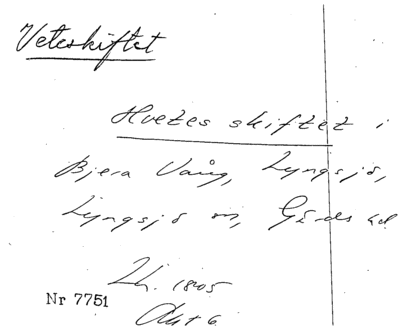 Veteskiftet
Hvetes skiftet i
Bjera Vång, Lyngsjö,
Lyngsjö sn, Gärds hd
Lh. 1805
Nr 7751
Akt 6